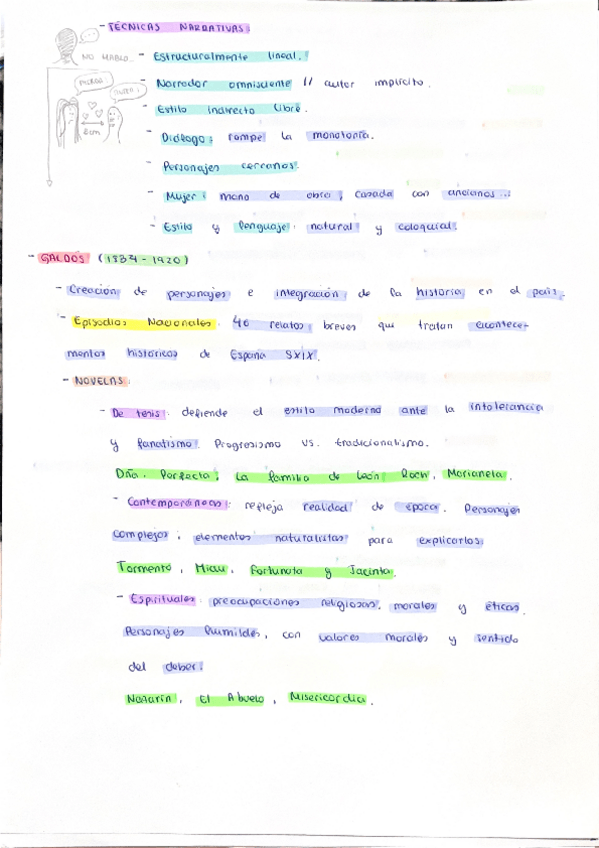 - TÉCNICAS NARRATIVAS:
NO HABLO...
- Estructuralmente lineal.
- Narrador omnisciente // autor implícito.
- Estilo indirecto libre.
2cm
- Diálogo: rompe la monotonía.
- Personajes cercanos.
- Mujer: mano de obra, casada con ancianos...
- Estilo y lenguaje: natural y coloquial.
- GALDÓS (1834-1920)
- Creación de personajes e integración de la historia en el país.
- Episodios Nacionales. 40 relatos breves que tratan acontece-
mentos históricos de España SXIX.
- NOVELAS:
- De tesis: defiende el estilo moderno ante la intolerancia
y fanatismo. Progresismo VS. tradicionalismo.
Dña. Perfecta, La familia de León Roch, Marianela.
- Contemporáneas: refleja realidad de época. Personajes
complejos, elementos naturalistas para explicarlos
Tormento, Miau, Fortunata y Jacinta.
- Espirituales: preocupaciones religiosas, morales y éticas.
Personajes humildes, con valores morales y sentido
del deber.
Nazarín, El Abuelo, Misericordia.